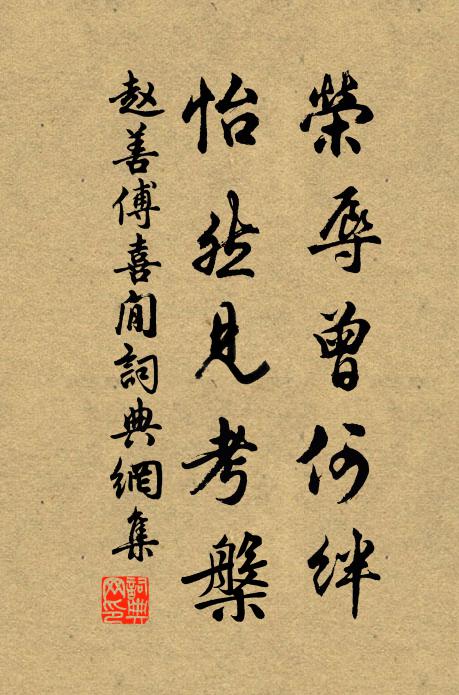 榮辱曾何絆
怡然見考槃
赵善傅喜閒詞典網集
詞典網印